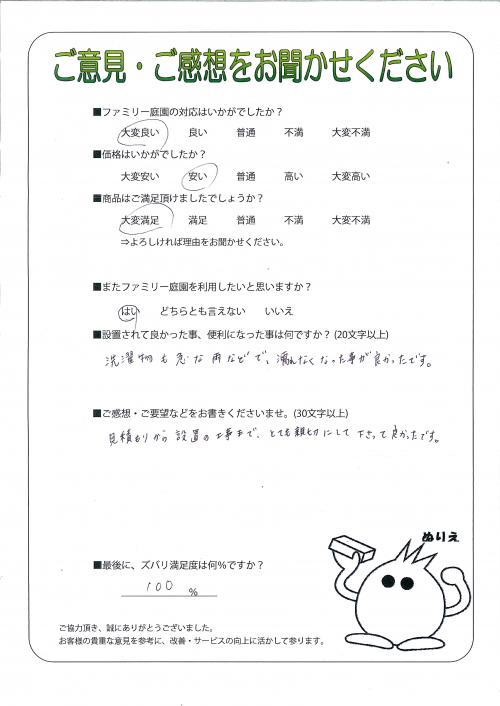 ご意見・ご感想をお聞かせください
■ファミリー庭園の対応はいかがでしたか？
大変良い 良い 普通 不満 大変不満
■価格はいかがでしたか？
大変安い 安い 普通 高い 大変高い
■商品はご満足頂けましたでしょうか？
大変満足 満足 普通 不満 大変不満
⇒よろしければ理由をお聞かせください。
■またファミリー庭園を利用したいと思いますか？
はい どちらとも言えない いいえ
■設置されて良かった事、便利になった事は何ですか？(20文字以上)
洗濯物も急な雨などで、濡れなくなった事が良かったです。
■ご感想・ご要望などをお書きくださいませ。(30文字以上)
見積もりから設置の工事まで、とても親切にして下さって良かったです。
ぬりえ
■最後に、ズバリ満足度は何％ですか？
100 ％
ご協力頂き、誠にありがとうございました。
お客様の貴重な意見を参考に、改善・サービスの向上に活かして参ります。